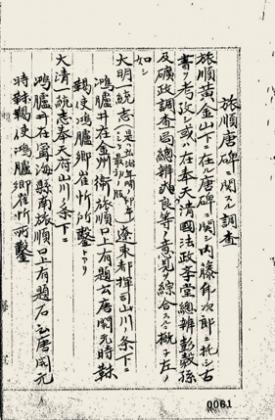 旅順唐碑ニ関スル調査
旅順黄金山下ニ在ル唐碑ニ関シ内藤虎次郎ニ托シ古
書ヲ考攷シ或ハ在奉天清國法政学堂総辦彭穀孫
及礦政調査局総辦爽良等ノ意見ヲ綜合スルニ概子左ノ
如シ
大明一統志 遼東都指揮司山川ノ条下ニ
鴻臚井在金州衛旅順口上有題石云唐開元時敕
鞨使鴻臚卿崔忻所鑿トアリ
大清一統志奉天府山川ノ条下ニ
鴻臚井在寧海縣南旅順口上有題石云唐開元
時 鞨使鴻臚卿崔忻所鑿
0061